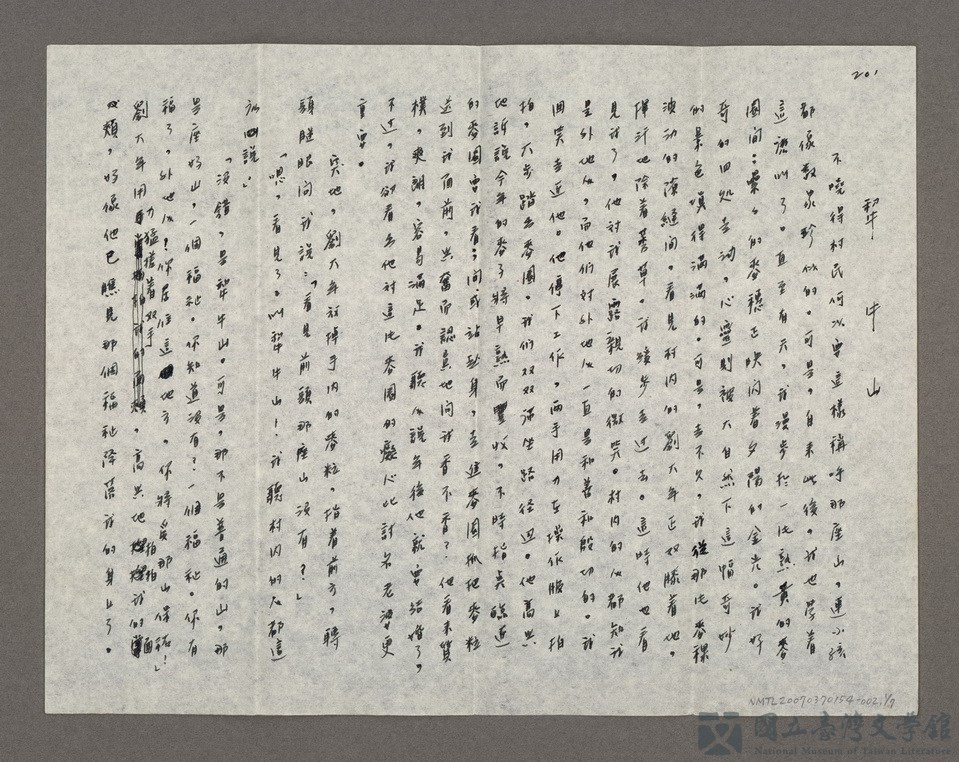 201
犂牛山
不曉得村民何以要這樣稱呼那座山，連小孩
都像數家珍似的。可是，自來此後，我也學着
這麼叫了。直至有天，我漫步於一片熟黃的麥
園間；纍纍的麥穗正映閃着夕陽的金光。我好
奇的四處走動，心靈則被大自然下這幅奇妙
的景色填得滿滿的。可是，走不久，我從那片麥稞
波動的隙縫間。看見村內的劉大年正奴膝着，他
揮汗地除着莠草。我緩步走過去。這時他也看
見我了，他對我展露親切的微笑。村內的人都知我
是外地人，而他們對外地人一直是和善和殷切的。我
回笑走近他。他停下工作，兩手用力在操作服上拍
拍，大步踏出麥園。我們双双滿坐路徑邊。他高興
地訴說今年的麥子將早熟而豐收，不時指點臨近
的麥園要我看；間或站起身，走進麥園抓把麥粒
送到我面前，興奮而認真地問我香不香？他看來質
樸，爽朗，容易滿足。我聽人說年後他就要結婚了，
不過，我卻看出他對這片麥園的癡心比討個老婆更
重要。
突地，劉大年放掉手內的麥粒，指着前方，轉
頭瞇眼問我說：「看見前頭那座山沒有？」
「嗯，看見了。叫犂牛山！我聽村內的人都這
麼說」
「沒錯，是犂牛山。可是，那不是普通的山，那
是座好山，一個福祉。你知道沒有？一個福祉。你有
福了，外地人！你居住這地方，你將受那山保祐！」
劉大年用力猛搓着双手，高興地拍拍我的面
頰，好像他已瞧見那個福祉降落我的身上了。
NMTL20070370154-002,1/7
國立臺灣文學館
National Museum of Taiwan Literature